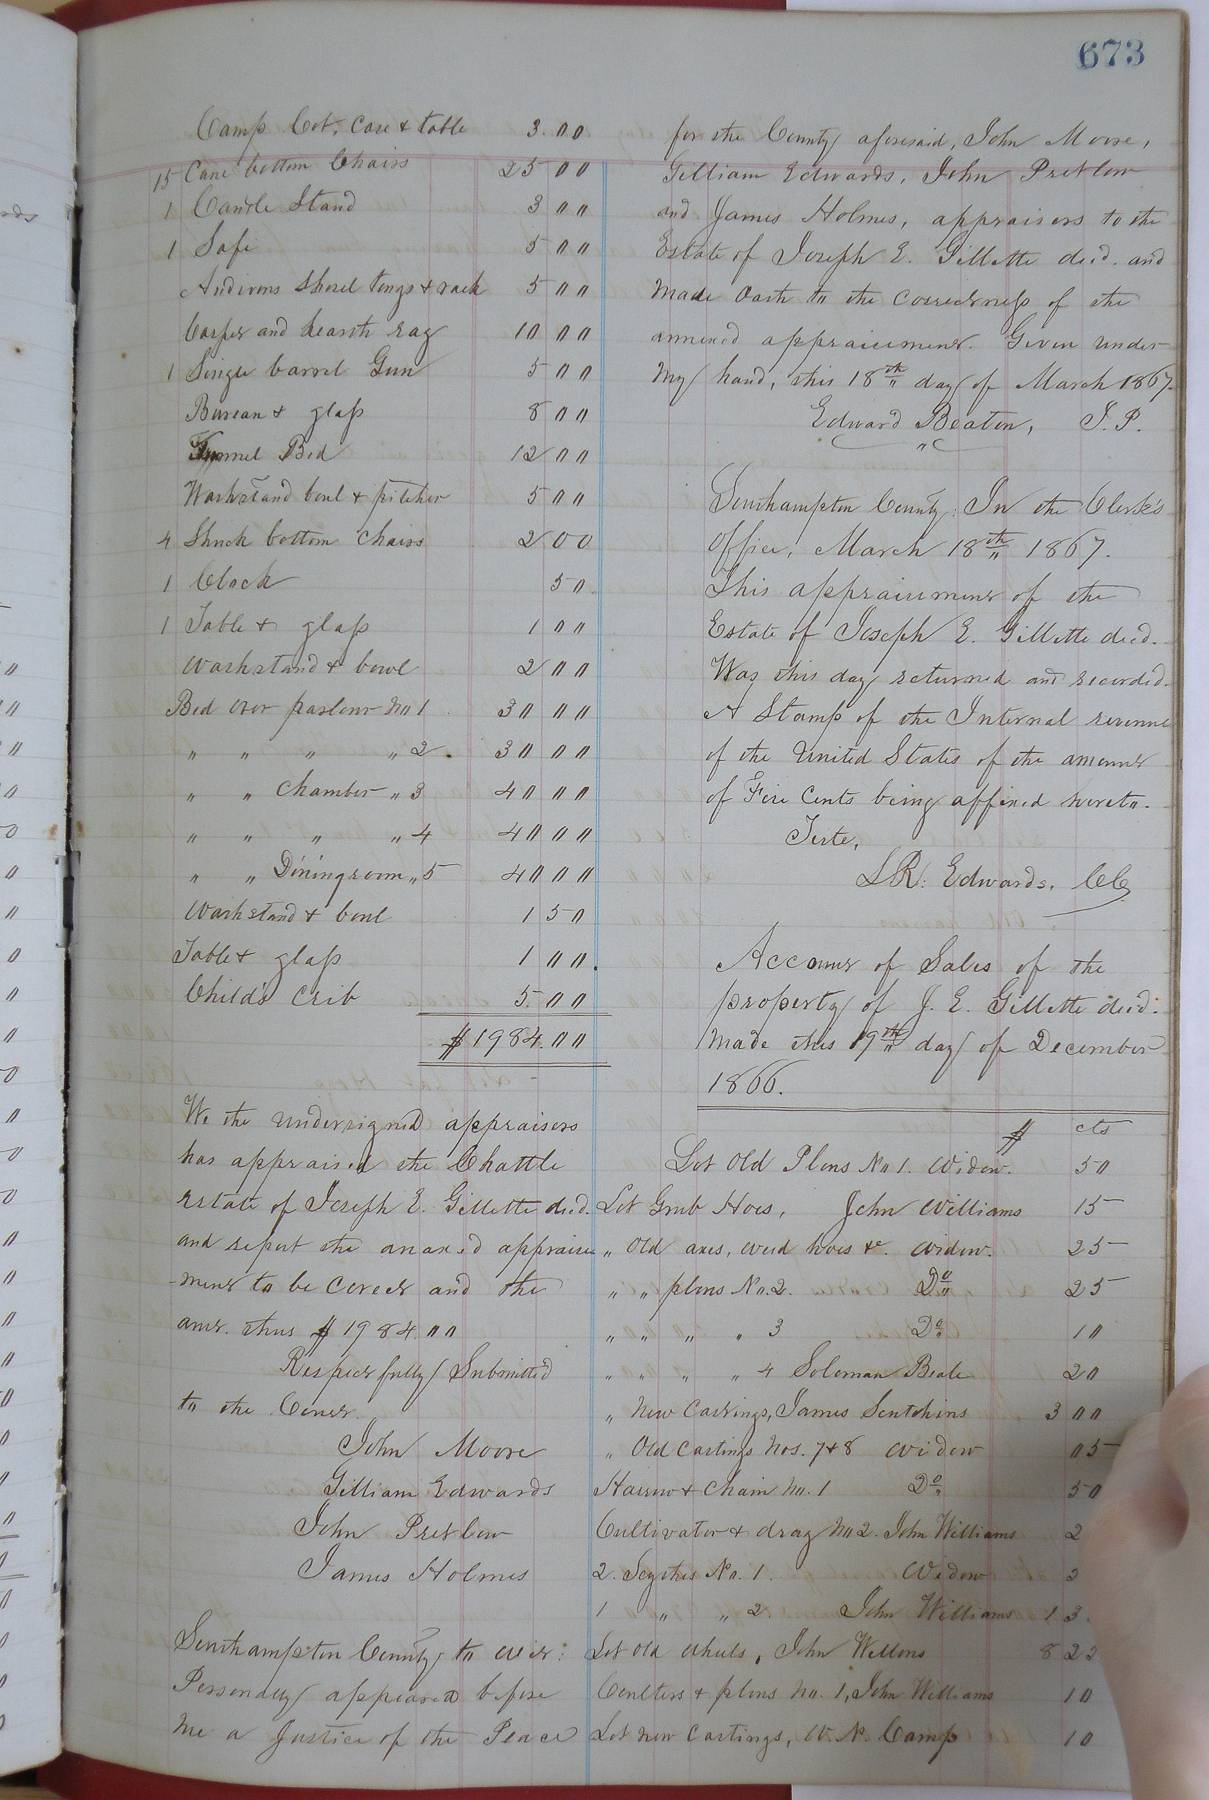 673
Camp Cot, Case & table 3.00
15 Cane bottom Chairs 25 00
1 Candle Stand 3 00
1 Safe 5 00
Andirons Shovel tongs & rack 5 00
Carpet and hearth rug 10 00
1 Single barrel Gun 5 00
Bureau & glass 8 00
Trunnel Bed 12 00
Washstand bowl & pitcher 5 00
4 Shuck bottom Chairs 2 00
1 Clock 50
1 Table & glass 1 00
Washstand & bowl 2 00
Bed over parlour No 1 30 00
" " " " 2. 30 00
" " Chamber " 3 40 00
" " " " 4 40 00
" " Diningroom " 5 40 00
Washstand & bowl 1 50
Table & glass 1 00.
Child's Crib 5.00
$1984.00
We the undersigned appraisers
has appraised the Chattle
Estate of Joseph E. Gillette decd.
and report the anaxed appraise
-ment to be correct and the
amt. thus $1984.00
Respectfully Submitted
to the Court.
John Moore
Gilliam Edwards
John Pretlow
James Holmes
Southampton County to wit:
Personally appeared before
me a Justice of the Peace
for the County aforesaid, John Moore,
Gilliam Edwards, John Pretlow
and James Holmes, appraisers to the
Estate of Joseph E. Gillette decd. and
made oath to the correctness of the
annexed appraisement. Given under
my hand, this 18th day of March 1867.
Edward Beaton, J. P.
Southampton County: In the Clerk's
Office, March 18th 1867.
This appraisement of the
Estate of Joseph E. Gillette decd.
Was this day returned and recorded.
A Stamp of the Internal revenue
of the United States of the amount
of Five Cents being affixed hereto.
Teste,
L. R. Edwards, CC
Account of Sales of the
property of J. E. Gillette decd.
Made this 19th day of December
1866.
$ cts
Lot Old Plows No 1. Widow. 50
Lot Grub Hoes, John Williams 15
" Old axes, weed hoes &c. Widow. 25
" " plows No. 2. Do 25
" " " " 3 Do 10
" " " " 4 Soloman Beale 20
" New Castings, James 3 00
" Old Castings Nos. 7 & 8 Widow 05
Harrow & Chain No. 1 Do 50
Cultivator & drag No 2. John Williams 2
2. Scythes No. 1. Widow
1 " " 2 John Williams 1 3
Lot old wheels, John 8 22
Coulters & plows No. 1, John Williams 10
Lot new Castings, W. N. Camp 10